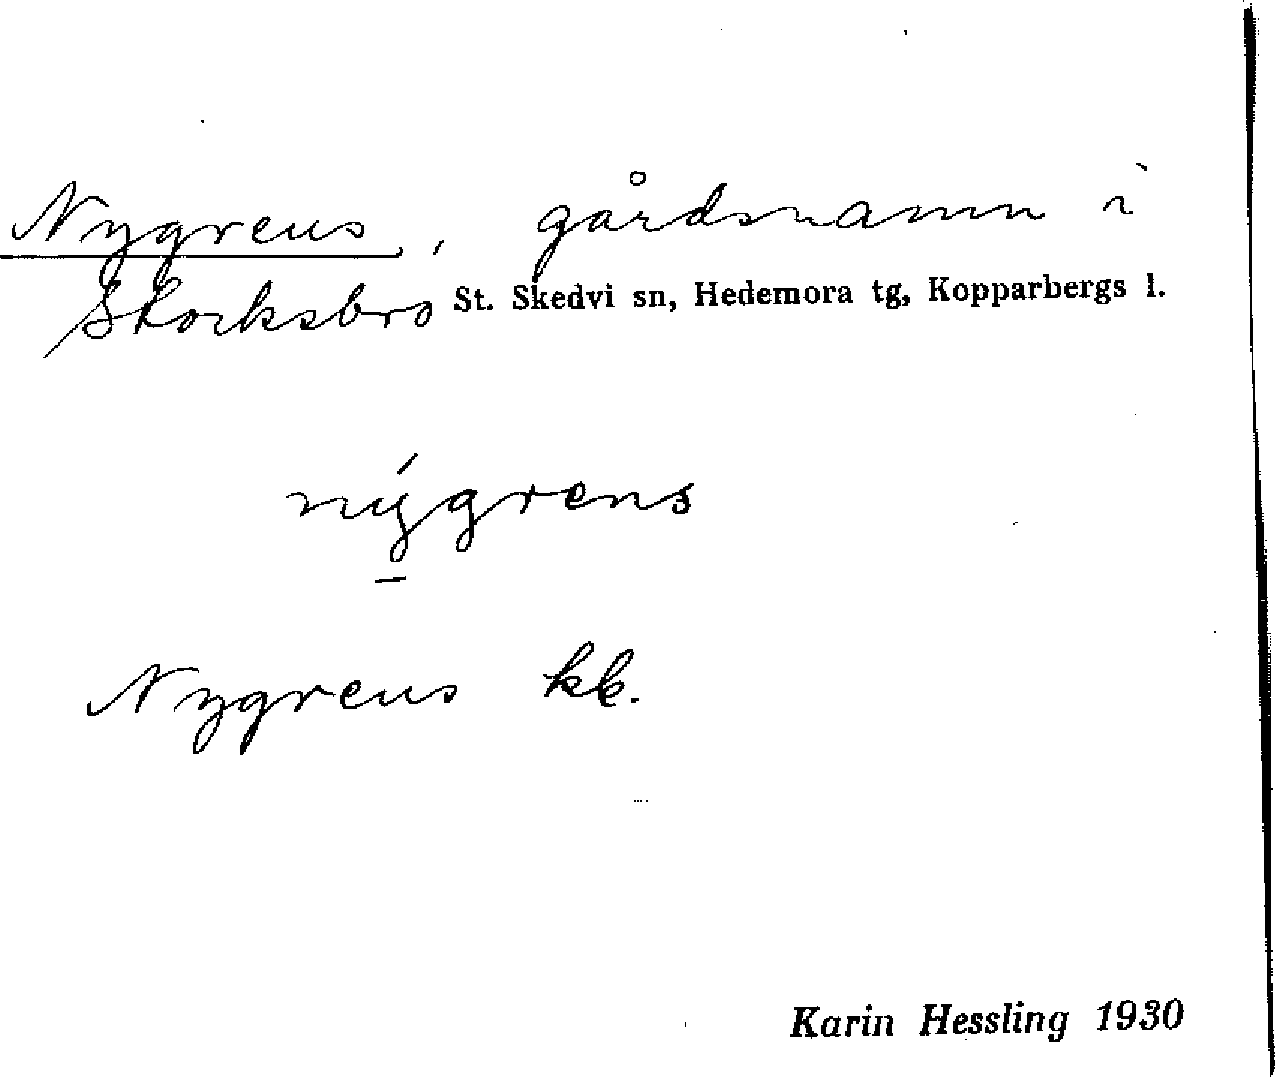 Nygrens, gårdsnamn i
Storksbro St. Skedvi sn, Hedemora tg, Kopparbergs l.
nýgrens
Nygrens kb.
Karin Hessling 1930